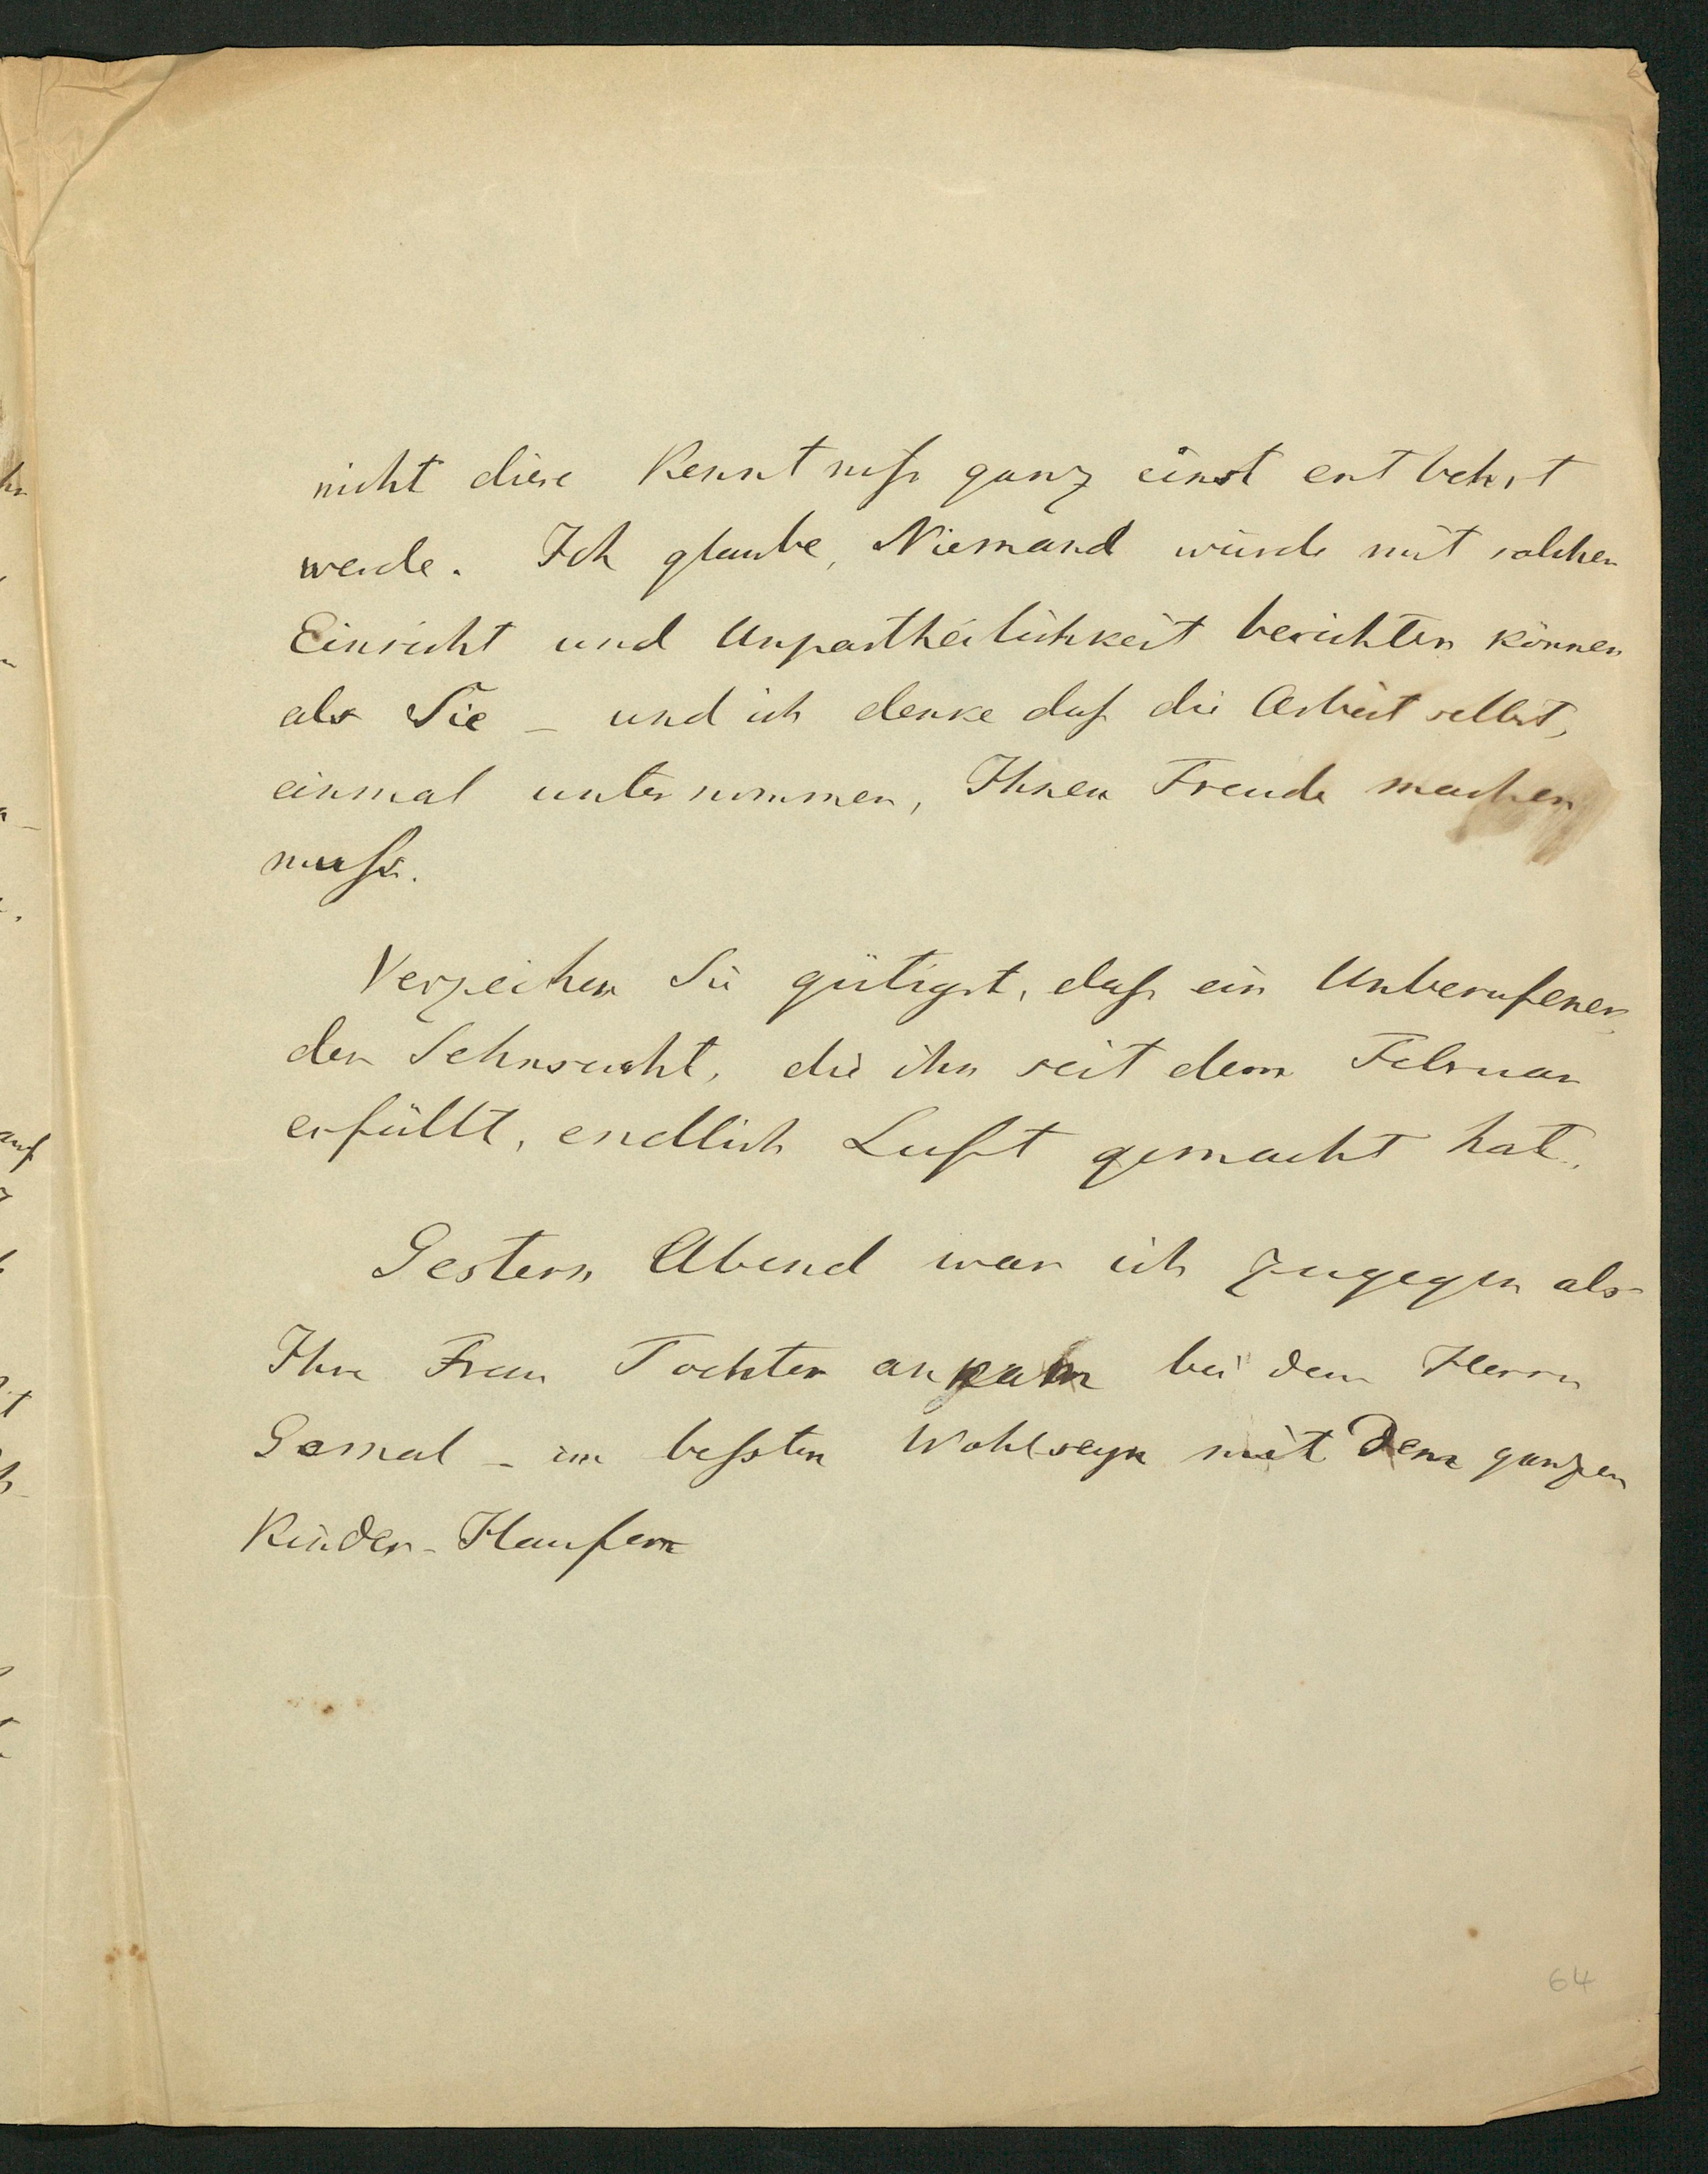 nicht diese Kenntniß ganz einst entbehrt
werde. Ich glaube, Niemand würde mit solcher
Einsicht und Unpartheilichkeit berichten können
als Sie – und ich denke daß die Arbeit selbst,
einmal unternommen, Ihnen Freude machen
muß.
Verzeihen Sie gütigst, daß ein Unberufener,
der Sehnsucht, die ihn seit dem Februar
erfüllt, endlich Luft gemacht hat.
Gestern Abend war ich zugegen als
Ihre Frau Tochter ankam bei dem Herrn
Gemal – im beßten Wohlseyn mit dem ganzen
Kinder-Haufen
64